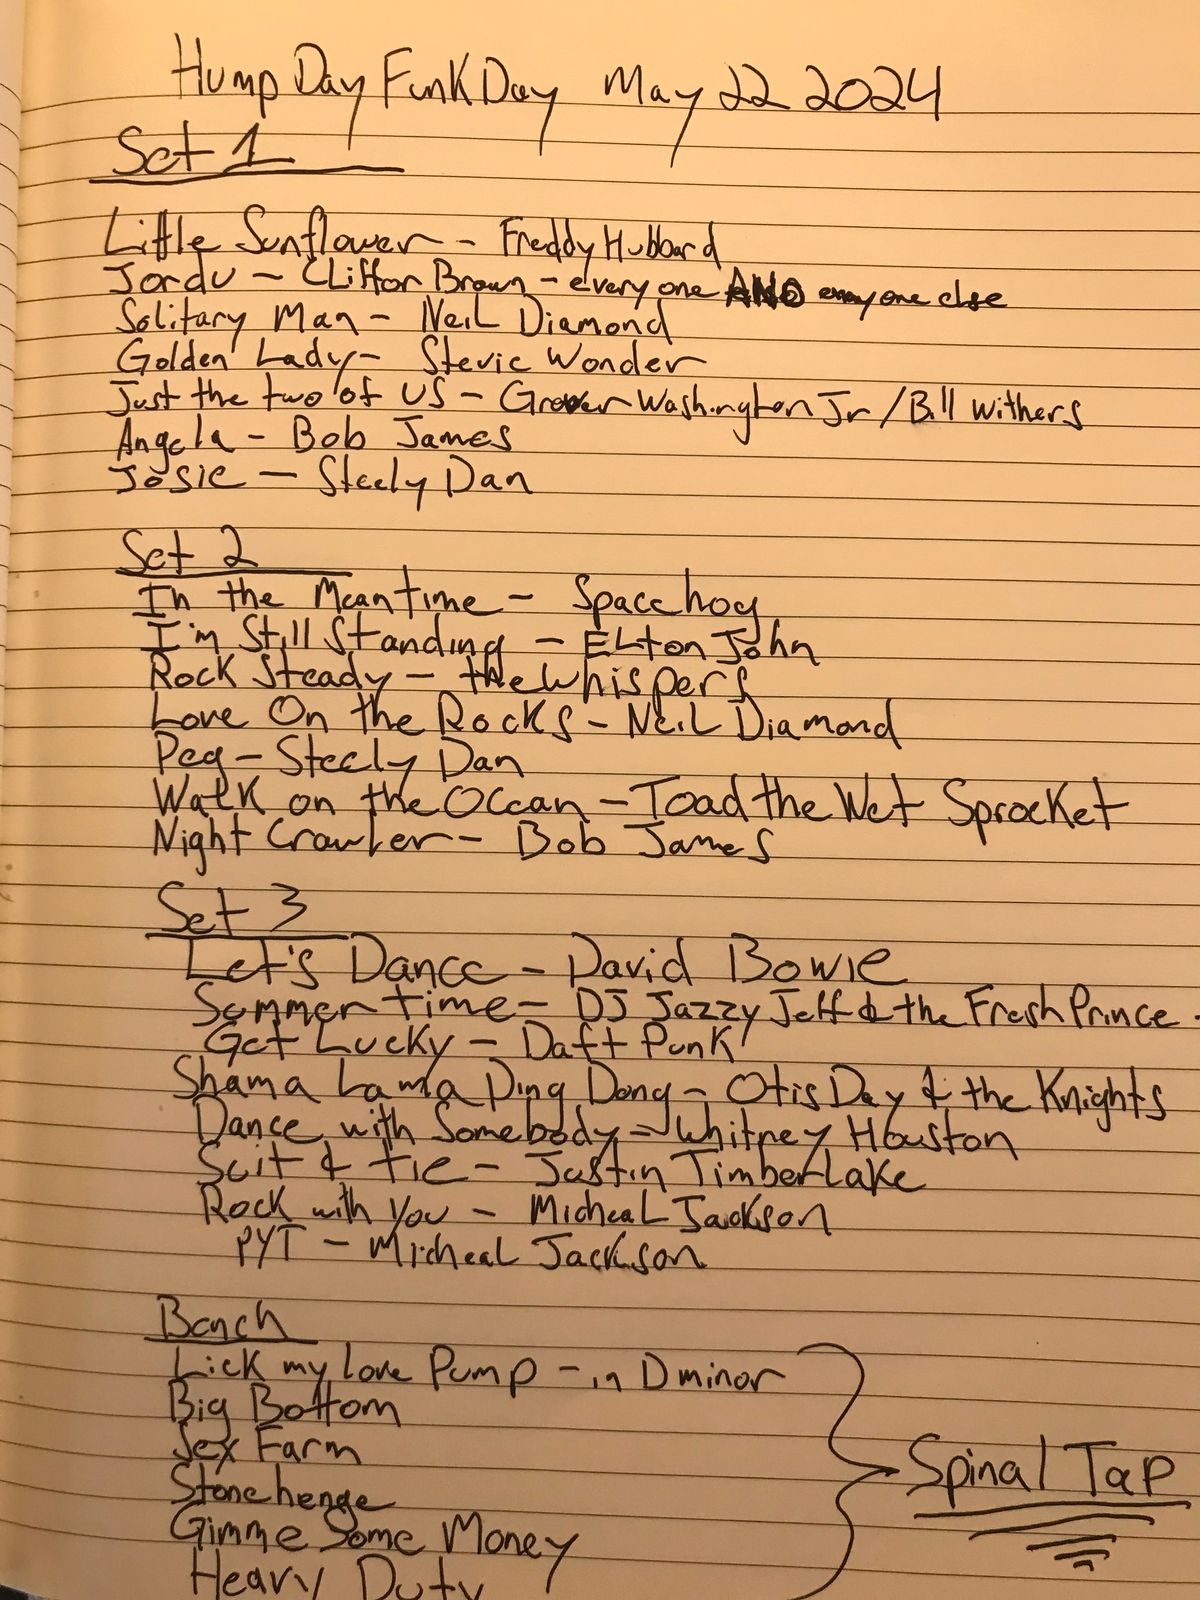 Hump Day Funk Day May 22 2024
Set 1
Little Sunflower - Freddy Hubbard
Jordu - Clifford Brown - everyone AND everyone else
Solitary Man - Neil Diamond
Golden Lady - Stevie Wonder
Just the two of US - Grover Washington Jr / Bill Withers
Angela - Bob James
Josie - Steely Dan
Set 2
In the Meantime - Spacehog
I'm Still Standing - Elton John
Rock Steady - the Whispers
Love On the Rocks - Neil Diamond
Peg - Steely Dan
Walk on the Ocean - Toad the Wet Sprocket
Night Crawler - Bob James
Set 3
Let's Dance - David Bowie
Summertime - DJ Jazzy Jeff & the Fresh Prince.
Get Lucky - Daft Punk
Shama Lama Ding Dong - Otis Day & the Knights
Dance with Somebody - Whitney Houston
Suit & Tie - Justin Timberlake
Rock with You - Micheal Jackson
PYT - Micheal Jackson
Bench
Lick my Love Pump - in D minor
Big Bottom
Sex Farm
Stonehenge
Spinal Tap
Gimme Some Money
Heavy Duty